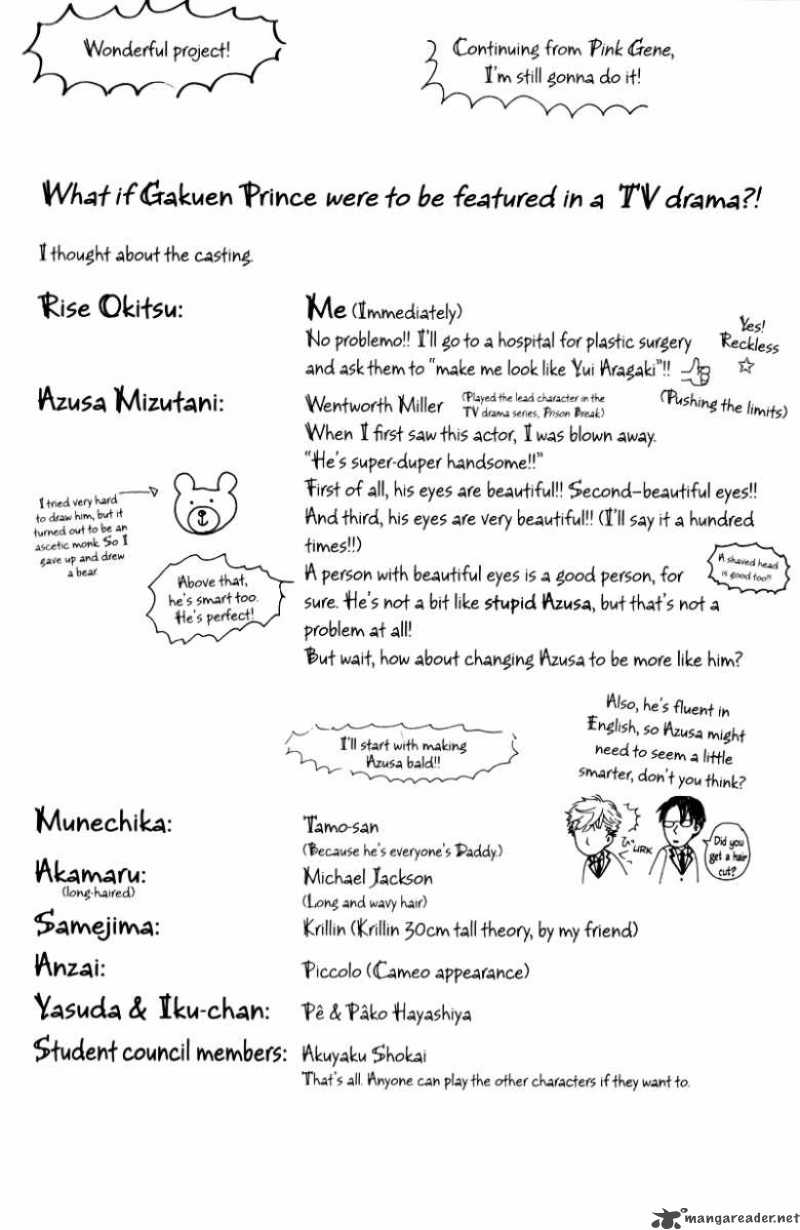 Wonderful project!
Continuing from Pink Gene,
I'm still gonna do it!
What if Gakuen Prince were to be featured in a TV drama?!
I thought about the casting.
Rise Okitsu:
Me (Immediately)
No problemo!! I'll go to a hospital for plastic surgery
and ask them to "make me look like Yui Aragaki"!!
Yes!
Reckless
☆
(Pushing the limits)
Azusa Mizutani:
Wentworth Miller
(Played the lead character in the
TV drama series, Prison Break)
When I first saw this actor, I was blown away.
"He's super-duper handsome!!"
First of all, his eyes are beautiful!! Second-beautiful eyes!!
And third, his eyes are very beautiful!! (I'll say it a hundred
times!!)
A person with beautiful eyes is a good person, for
sure. He's not a bit like stupid Azusa, but that's not a
problem at all!
But wait, how about changing Azusa to be more like him?
I tried very hard
to draw him, but it
turned out to be an
ascetic monk. So I
gave up and drew
a bear
Above that,
he's smart too.
He's perfect!
A shaved head
is good too!!
I'll start with making
Azusa bald!!
Also, he's fluent in
English, so Azusa might
need to seem a little
smarter, don't you think?
LIRK
Did you
get a hair
cut?
Munechika:
Tamo-san
(Because he's everyone's Daddy.)
Akamaru:
(long-haired)
Michael Jackson
(Long and wavy hair)
Samejima:
Krillin (Krillin 30cm tall theory, by my friend)
Anzai:
Piccolo (Cameo appearance)
Yasuda & Iku-chan:
Pê & Pâko Hayashiya
Student council members:
Akuyaku Shokai
That's all. Anyone can play the other characters if they want to.
mangareader.net